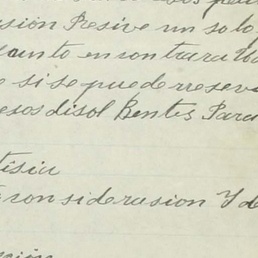 usión Presive un solo
cunto encontrara la
e si se puede rreserv
esos disol Bentes Para
tisia
considerasion Y de